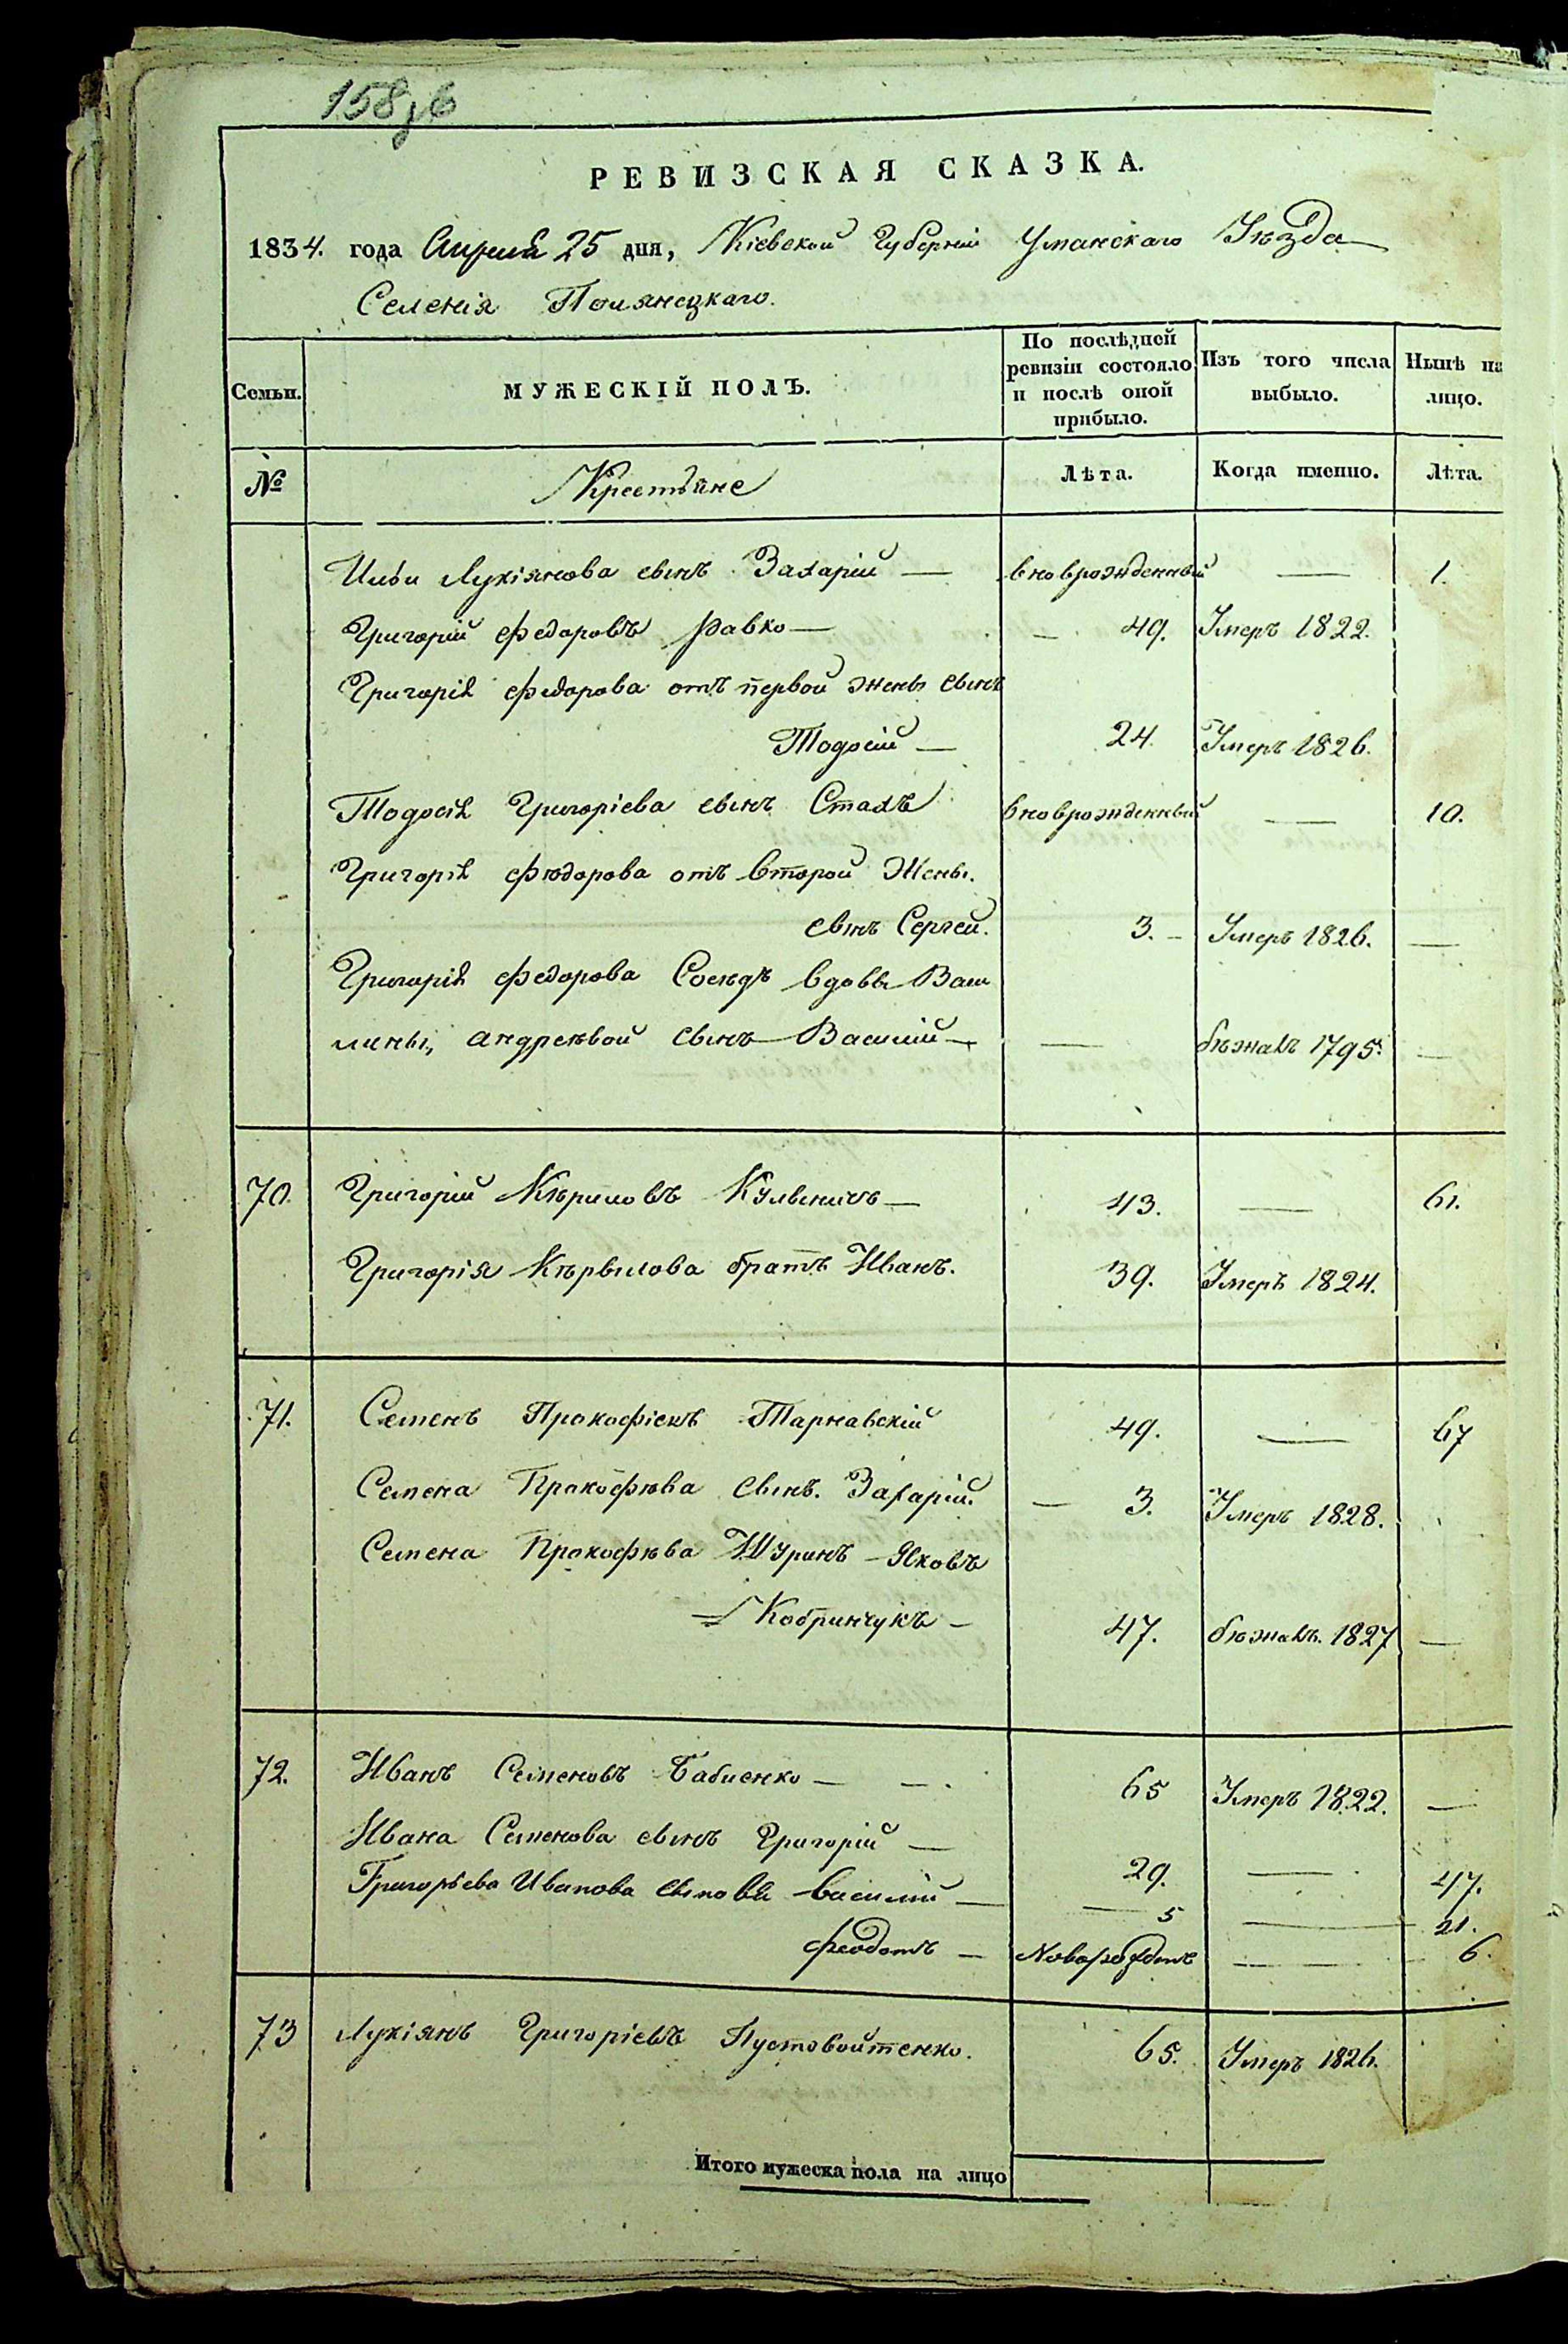 158 зв
РЕВИЗСКАЯ СКАЗКА.
1834. года Апреля 25 дня, Кіевской Губерніи Уманскаго Уѣзда
Селенія Полянецкаго.
Семьи.
МУЖЕСКІЙ ПОЛЪ.
По послѣдней ревизіи состояло и послѣ оной прибыло.
Изъ того числа выбыло.
Нынѣ на лицо.
№ Крестьяне Лѣта. Когда именно. Лѣта.
Ильи Лукіянова сынъ Захарій — вноврожденный — 1.
Григорій Федоровъ — 49. Умеръ 1822.
Григорія Федорова отъ первой жены сынъ
Тодосій — 24. Умеръ 1826.
Тодосія Григоріева сынъ Стахъ вноврожденный — 10.
Григорія Федорова отъ второй Жены.
сынъ Сергей. 3. — Умеръ 1826. —
Григорія Федорова Сосѣдъ вдовы Васи
лины, Андреѣвой сынъ Василий — — бѣжалъ 1795. —
70. Григорий Кѣриловъ — 43. — 61.
Григорія Кѣрылова братъ Иванъ. 39. Умеръ 1824.
71. Семенъ Прокофіевъ Тарнавскій 49. — 67
Семена Прокофѣва Сынъ. Захарій. — 3. Умеръ 1828.
Семена Прокофѣва Шуринъ Яковъ
Кобринчукъ — 47. бѣжалъ. 1827 —
72. Иванъ Семеновъ Бабиенко — — 65 Умеръ 1822. —
Ивана Семенова сынъ Григорій — 29. — 47.
Григорьева Иванова сыновья Василий — — 5 — 21.
Феодотъ — — 6.
73 Лукіянъ Григоріевъ Пустовойтенко. 65. Умеръ 1826.
Итого мужеска пола на лицо